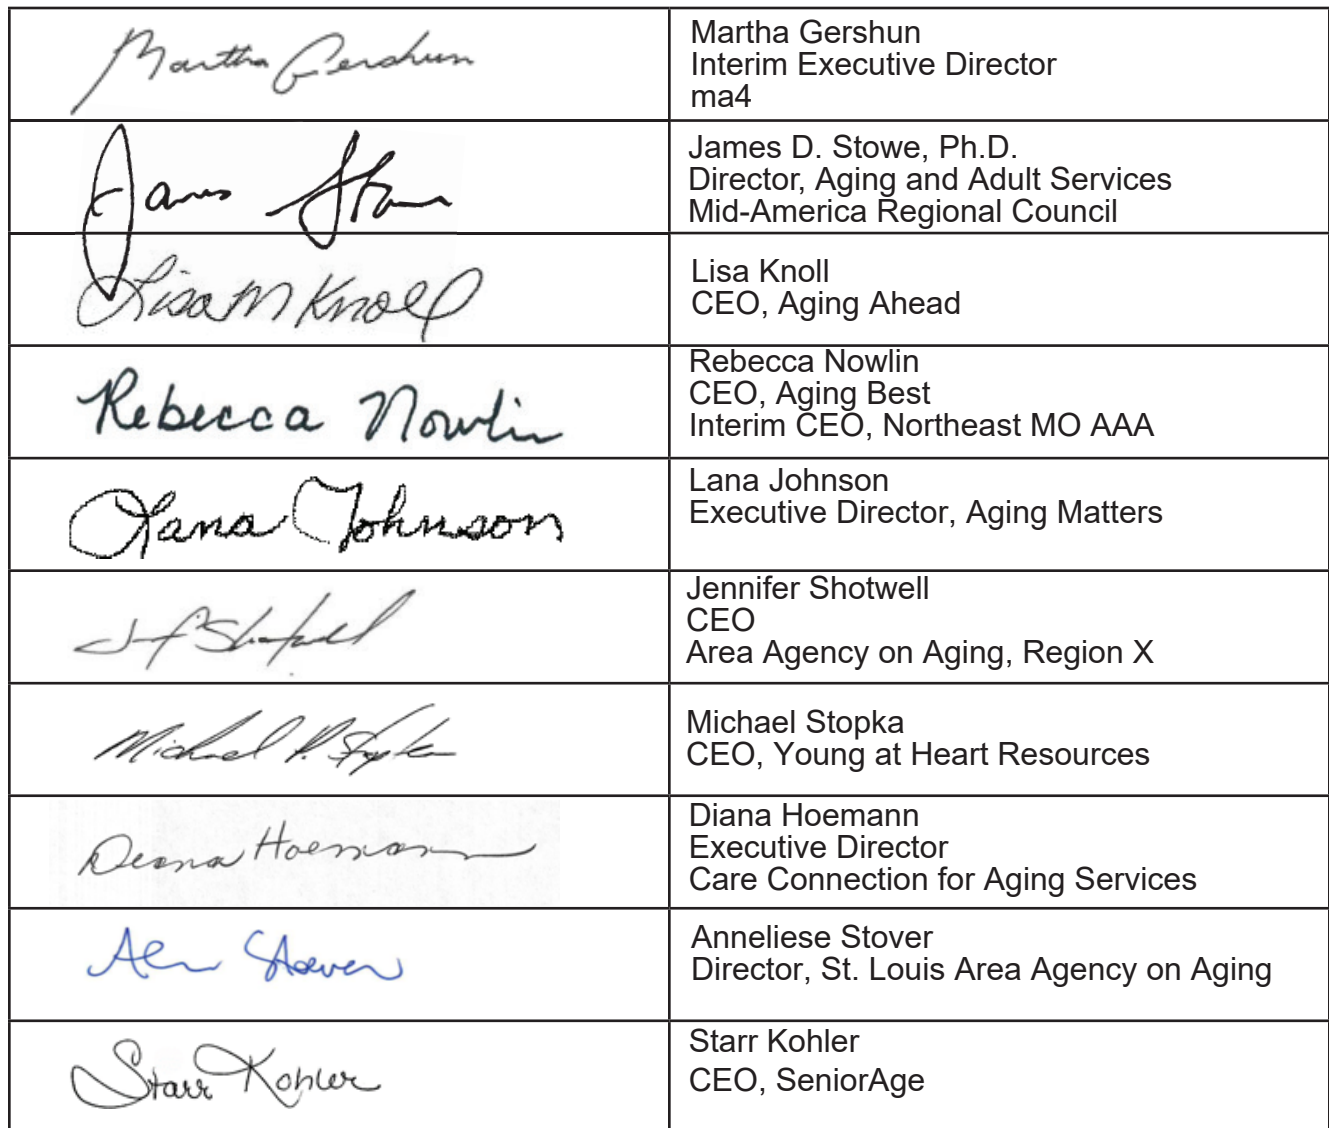 Martha Gershun
Martha Gershun
Interim Executive Director
ma4
James Stowe
James D. Stowe, Ph.D.
Director, Aging and Adult Services
Mid-America Regional Council
Lisa M Knoll
Lisa Knoll
CEO, Aging Ahead
Rebecca Nowlin
Rebecca Nowlin
CEO, Aging Best
Interim CEO, Northeast MO AAA
Lana Johnson
Lana Johnson
Executive Director, Aging Matters
Jennifer Shotwell
CEO
Area Agency on Aging, Region X
Michael P. Stopka
Michael Stopka
CEO, Young at Heart Resources
Diana Hoemann
Diana Hoemann
Executive Director
Care Connection for Aging Services
Stover
Anneliese Stover
Director, St. Louis Area Agency on Aging
Starr Kohler
Starr Kohler
CEO, SeniorAge